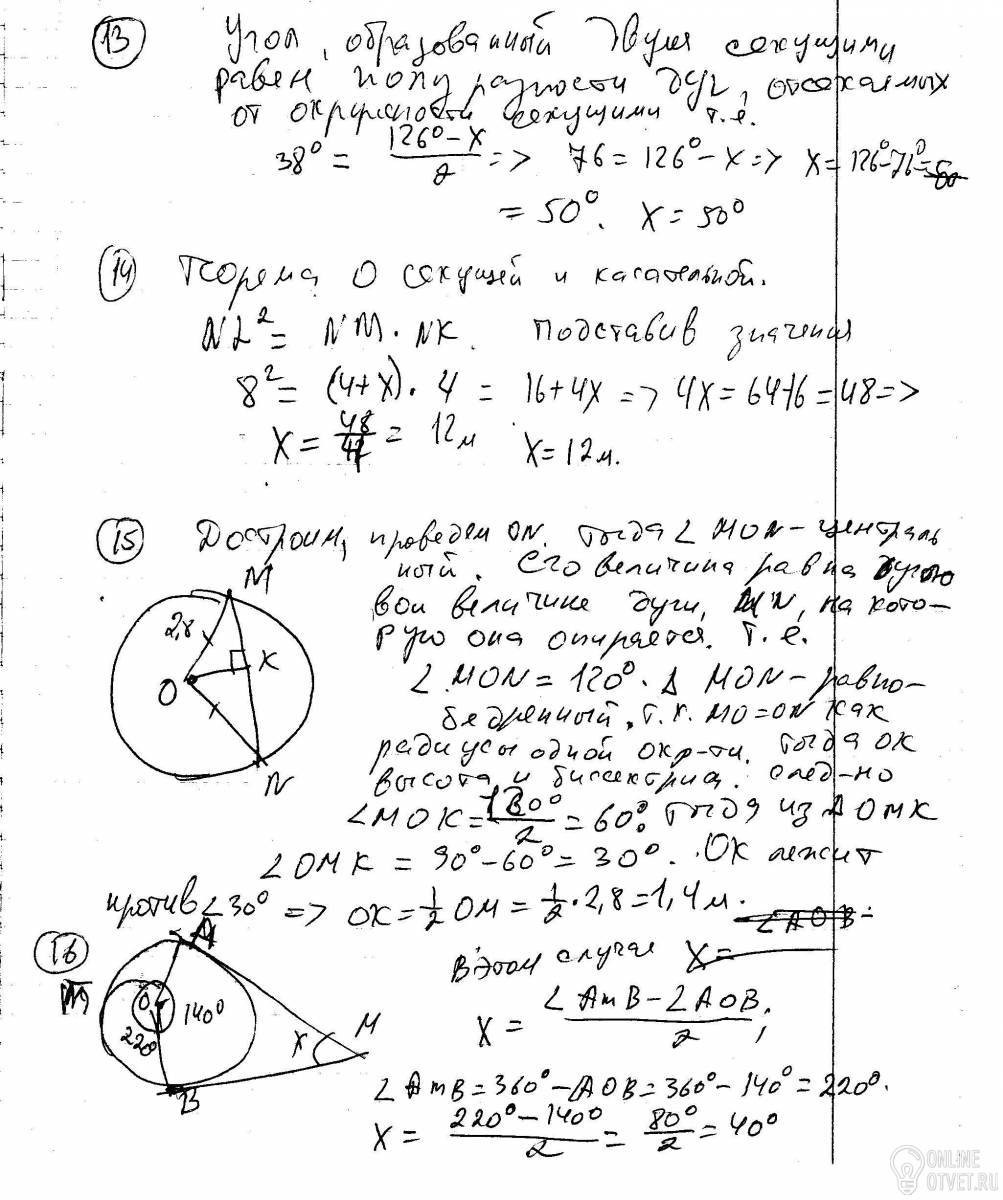 13
Угол, образованный двумя секущими
равен полуразности дуг, отсекаемых
от окружности секущими т.е.
38° = (126° - x)/2 => 76 = 126° - x => x = 126° - 76° =
= 50°. x = 50°
14 Теорема о секущей и касательной.
NL² = NM · NK. Подставив значения
8² = (4+x) · 4 = 16 + 4x => 4x = 64-16 = 48 =>
x = 48/4 = 12м x = 12м.
15 Достроим, проведем ON. Тогда ∠MON - централь
ный. Его величина равна дуго
вой величине дуги, MN, на кото-
рую она опирается. Т.е.
∠MON = 120°. Δ MON - равно-
бедренный, т.к. MO = ON как
радиусы одной окр-ти. Тогда OK
высота и биссектриса. След-но
∠MOK = 120°/2 = 60°. Тогда из Δ OMK
∠OMK = 90° - 60° = 30°. OK лежит
против ∠30° => OK = 1/2 OM = 1/2 · 2,8 = 1,4 м.
M
2,8
O
K
N
16
∠AOB =
В этом случае x =
x = (∠AmB - ∠AOB)/2;
∠AmB = 360° - AOB = 360° - 140° = 220°.
x = (220° - 140°)/2 = 80°/2 = 40°
A
m
O
140°
220°
x
M
B
ONLINE
OTVET.RU